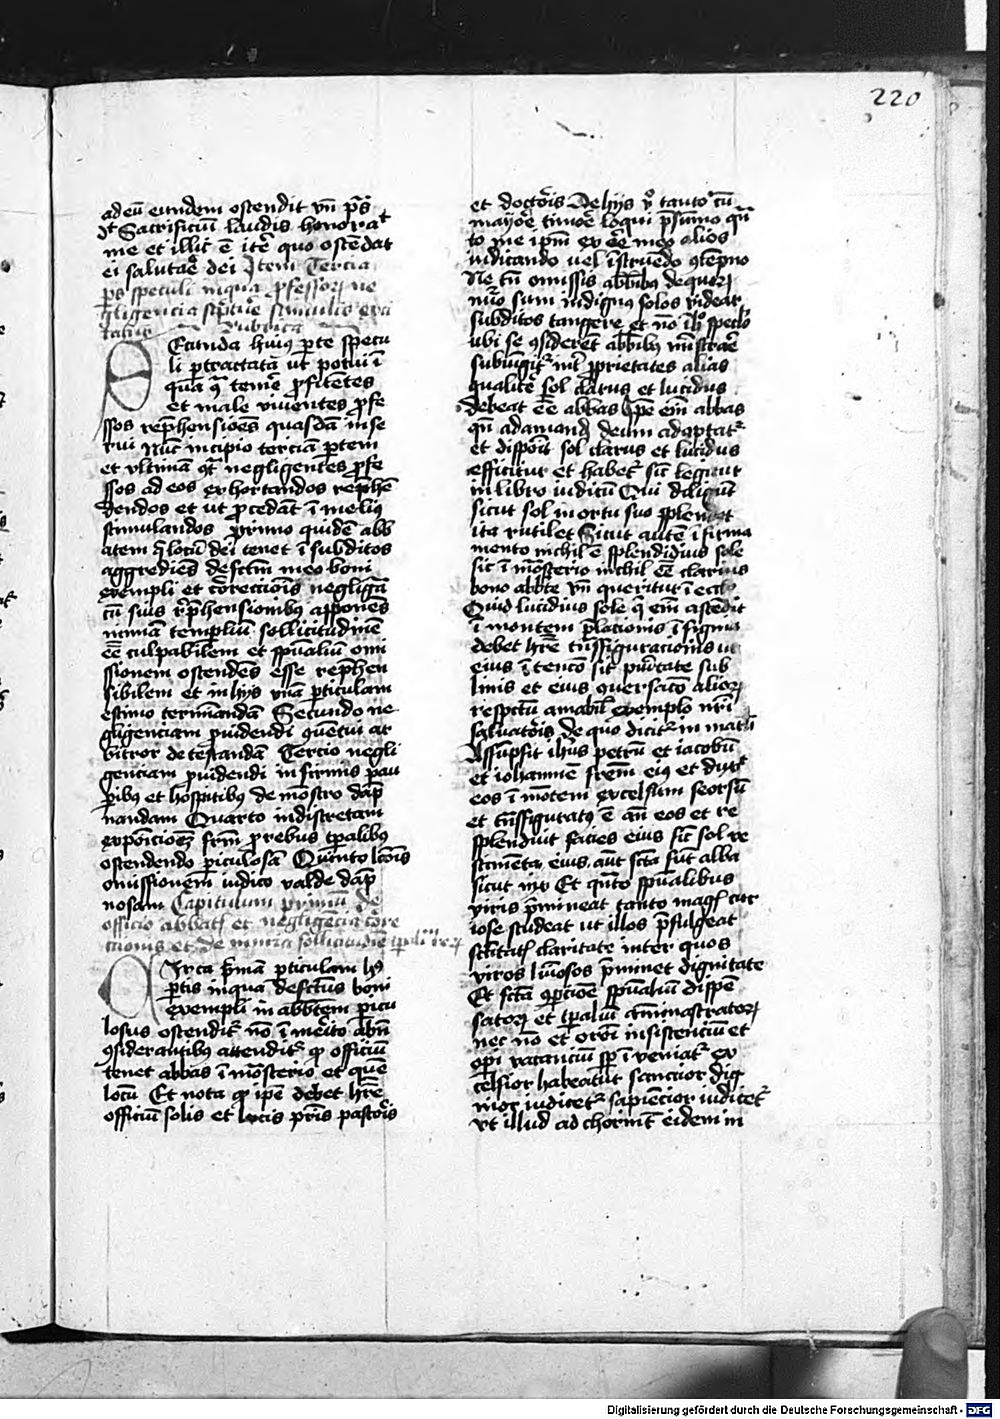 220
ad eū eundem ostendit vn̄ p̄s
dt Sacrificiū laudis honorat
me et illic ē iter quo ostēdat
ei salutaē dei Item Tercia
ps speculi inqua ꝓfessoꝝ ne
gligencia stimulis exci
tatur Rubrica
Secunda huius ꝑte specu
li ꝑtractata ut potui ī
qua ꝙ temē ꝓfitētes
et male viuentes ꝓfe
ssos rep̄hensiōes quasdā inse
rui nūc incipio terciā ꝑtem
et vltimā negligentes ꝓfe
ssos ad eos exhortandos rep̄hē
dendos et ut ꝓcedāt ī melius
stimulandos primo quidē abb
atem ꝗ locū dei tenet ī subditos
aggrediēs defctm̄ meo boni
exempli et correcciōis negligā
cū suis rep̄hensionibꝰ appōnēs
nimiā templiū sollicitudinē
ēē culpabilem et spūaliū omi
ssionem ostendēs esse rep̄hen
sibilem et in hijs vnā ꝑticulam
estimo terminandā Secundo ne
gligenciam ꝓuidendi ar
bitror detestandā Tercio negli
genciam ꝓuidendi infirmis pau
ꝑibus et hospitibꝰ demōstro dāp
nandam Quarto indiscretam
frm̄ ꝓ rebus tꝑalibꝰ
ostendendo ꝑiculosā Quinto lcōis
omissionem iudico valde dāp
nosam Capitulum primū de
officio abbatis et negligēcia corre
ctionis et de nimia sollicitudīe tꝑaliū reꝝ
Circa p̄mā ꝑticulam hꝰ
ꝑtis inqua defctus boni
exempli in abbtem picu
losus ostendit̄ nō īmerito abn̄
ꝯsiderantibꝰ attendit̄ ꝙ officiū
tenet abbas ī mōsterio et quē
locū Et nota ꝙ ipē debet hr̄e
officiū solis et lucis pr̄is pastoris
et doctoris De hijs v̊ tanto cū
mayore timore loqui p̄sumo qn̄
to me ipm̄ ex ēē meo alios
iudicando uel īstruēdo ꝯtēpno
Ne tn̄ omissis abbibus de quoꝝ
nūo sum indignꝰ solos videar
subditos tangere et nō ī hͦ speclo
ubi se ꝯsiderēt abbibꝰ mīstrare
subiūgit̄ nr̄ ꝓprietates alias
qualiter sol clarus et lucidus
debeat ēē abbas Ipē em̄ abbas
qn̄ adamand deum adoptat̄
et disponit sol clarus et lucidus
efficitur et habet̄ sic̄ legitur
in libro iudicū Qui diligūt
sicut sol in ortu suo splendet
ita rutilet Sicut autē ī firma
mento nichil ē splendidius sole
sic ī mōsterio nichil ēē clarius
bono abbte vn̄ queritur ī eccl̄
Quid lucidius sole ꝗ em̄ ascēdit
ī montem p̄lationis ī figura
debet hr̄e trāsfiguracionis ut
eius ītencō sit puritate sub
limis et eius ꝯuersacō alioꝝ
respctū amabil̄ exemplo nr̄i
saluatoris de quo dicit̄ in math
Assūpsit ihūs petrū et iacobū
et iohannē frēm eiꝰ et duxit
eos ī mōtem excelsum seorsū
et trāsfiguratꝰ ē an̄ eos et re
splenduit facies eius sic̄ sol ve
stimēta eius aūt fcta sūt alba
sicut nix Et qn̄to spūalibus
viris p̄mineat tanto maḡ cur
iose studeat ut illos p̄fulgeat
sctitatis claritate inter quos
viros p̄minet dignitate
Et spūaliū dispē
satoꝝ et tꝑaliū amīnastratoꝝ
nec nō et orōi insistenciū et
oꝑi vacanciū sꝑ īueniat̄ ex
celsior habeatur sanctior dig
nior iudicet̄ sapiēcior iudicet̄
vt illud ad eidem in
Digitalisierung gefördert durch die Deutsche Forschungsgemeinschaft - DFG